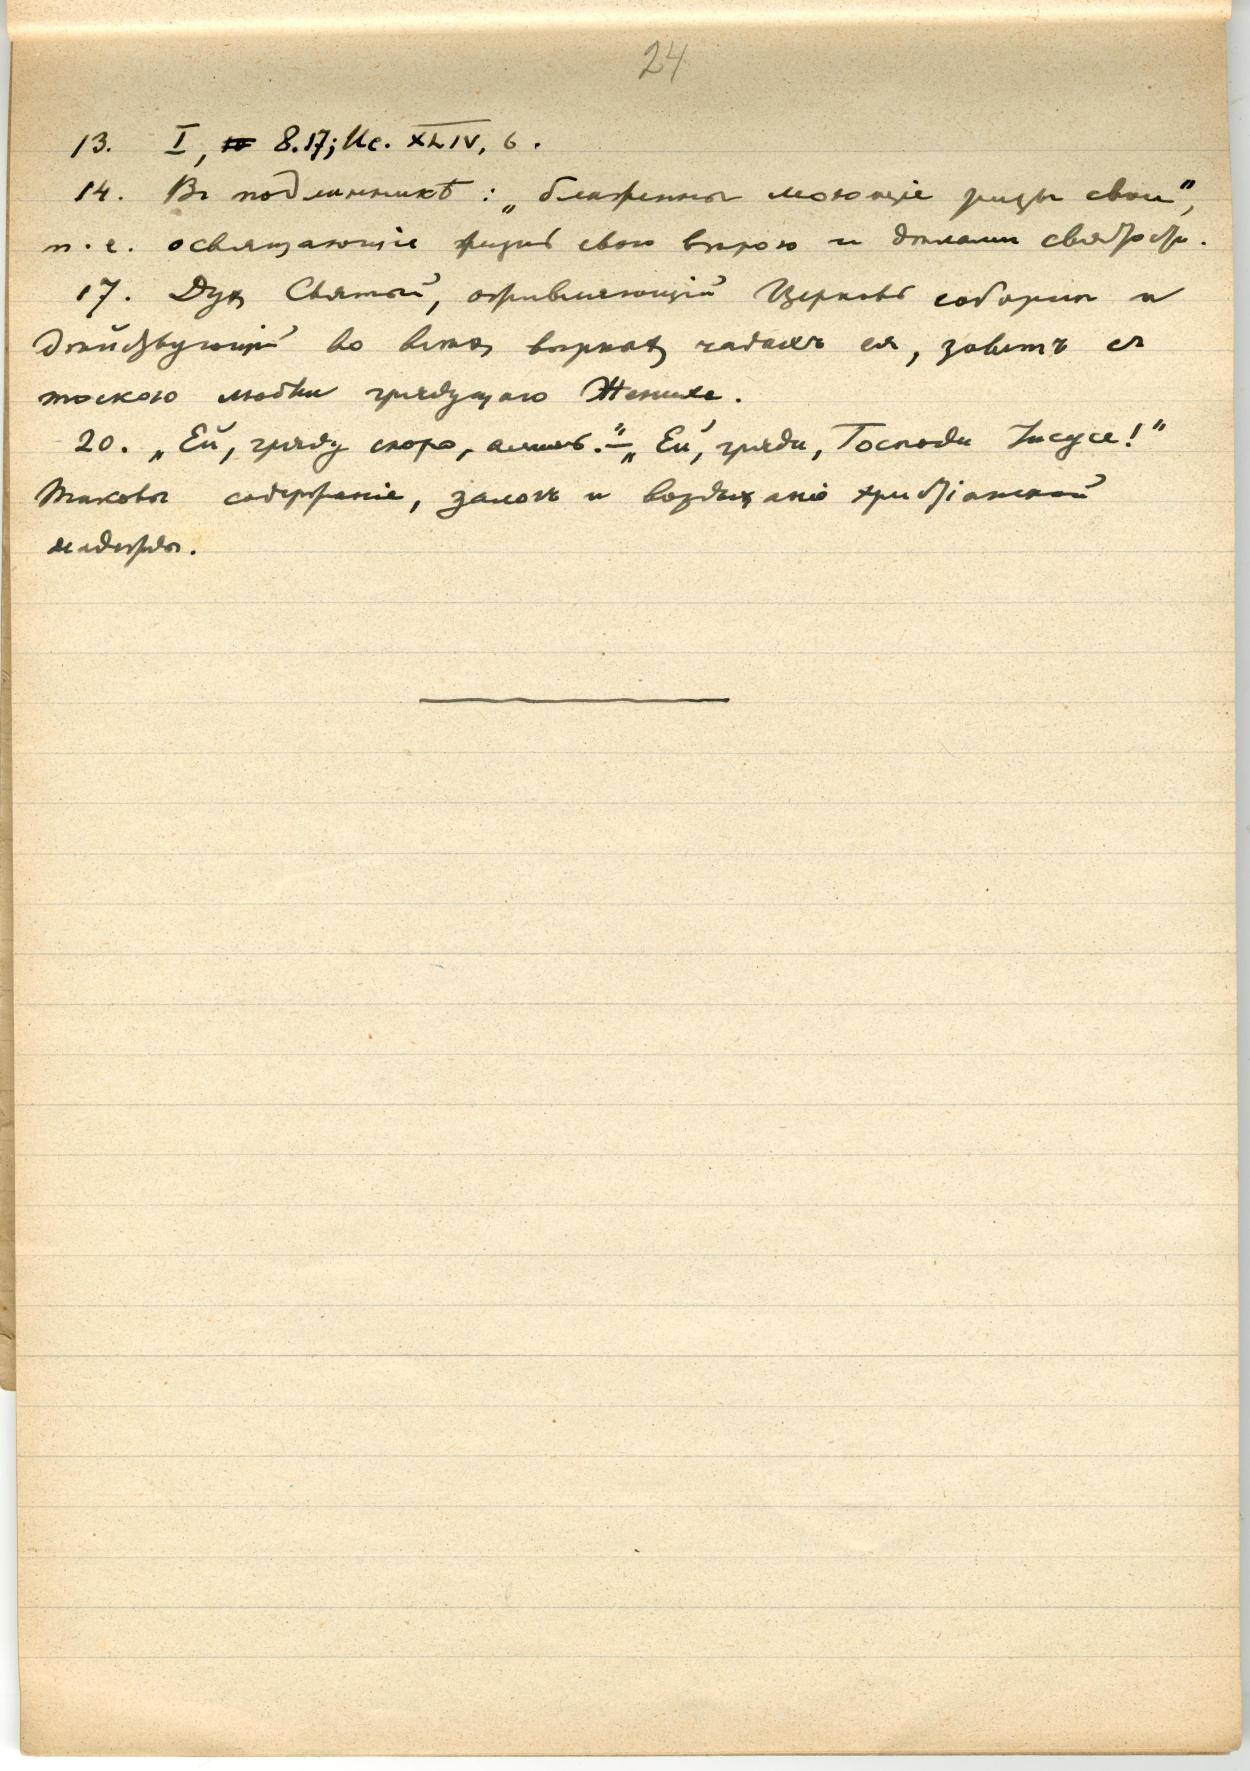 24
13. I, 8.17; Ис. XLIV, 6.
14. Въ подлинникѣ: „блаженны моющіе ризы свои",
т. е. освящающіе жизнь свою вѣрою и дѣлами святости.
17. Духъ Святый, оживляющій Церковь соборнѣ и
дѣйствующій во всѣхъ вѣрныхъ чадахъ ея, зоветъ съ
тоскою любви грядущаго Жениха.
20. „Ей, гряду скоро, аминь." — „Ей, гряди, Господи Іисусе!"
Таковы содержаніе, залогъ и воздыханіе христіанской
надежды.